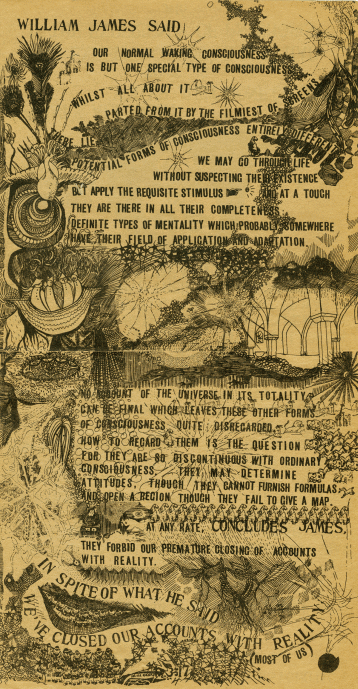 WILLIAM JAMES SAID
OUR NORMAL WAKING CONSCIOUSNESS
IS BUT ONE SPECIAL TYPE OF CONSCIOUSNESS
WHILST ALL ABOUT IT
PARTED FROM IT BY THE FILMIEST OF SCREENS
THERE LIE
POTENTIAL FORMS OF CONSCIOUSNESS ENTIRELY DIFFERENT
WE MAY GO THROUGH LIFE
WITHOUT SUSPECTING THEIR EXISTENCE
BUT APPLY THE REQUISITE STIMULUS AND AT A TOUCH
THEY ARE THERE IN ALL THEIR COMPLETENESS
DEFINITE TYPES OF MENTALITY WHICH PROBABLY SOMEWHERE
HAVE THEIR FIELD OF APPLICATION AND ADAPTATION.
NO ACCOUNT OF THE UNIVERSE IN ITS TOTALITY
CAN BE FINAL WHICH LEAVES THESE OTHER FORMS
OF CONSCIOUSNESS QUITE DISREGARDED
HOW TO REGARD THEM IS THE QUESTION
FOR THEY ARE SO DISCONTINUOUS WITH ORDINARY
CONSCIOUSNESS THEY MAY DETERMINE
ATTITUDES, THOUGH THEY CANNOT FURNISH FORMULAS
AND OPEN A REGION THOUGH THEY FAIL TO GIVE A MAP.
AT ANY RATE, CONCLUDES JAMES,
THEY FORBID OUR PREMATURE CLOSING OF ACCOUNTS
WITH REALITY.
IN SPITE OF WHAT HE SAID
WE'VE CLOSED OUR ACCOUNTS WITH REALITY
(MOST OF US)